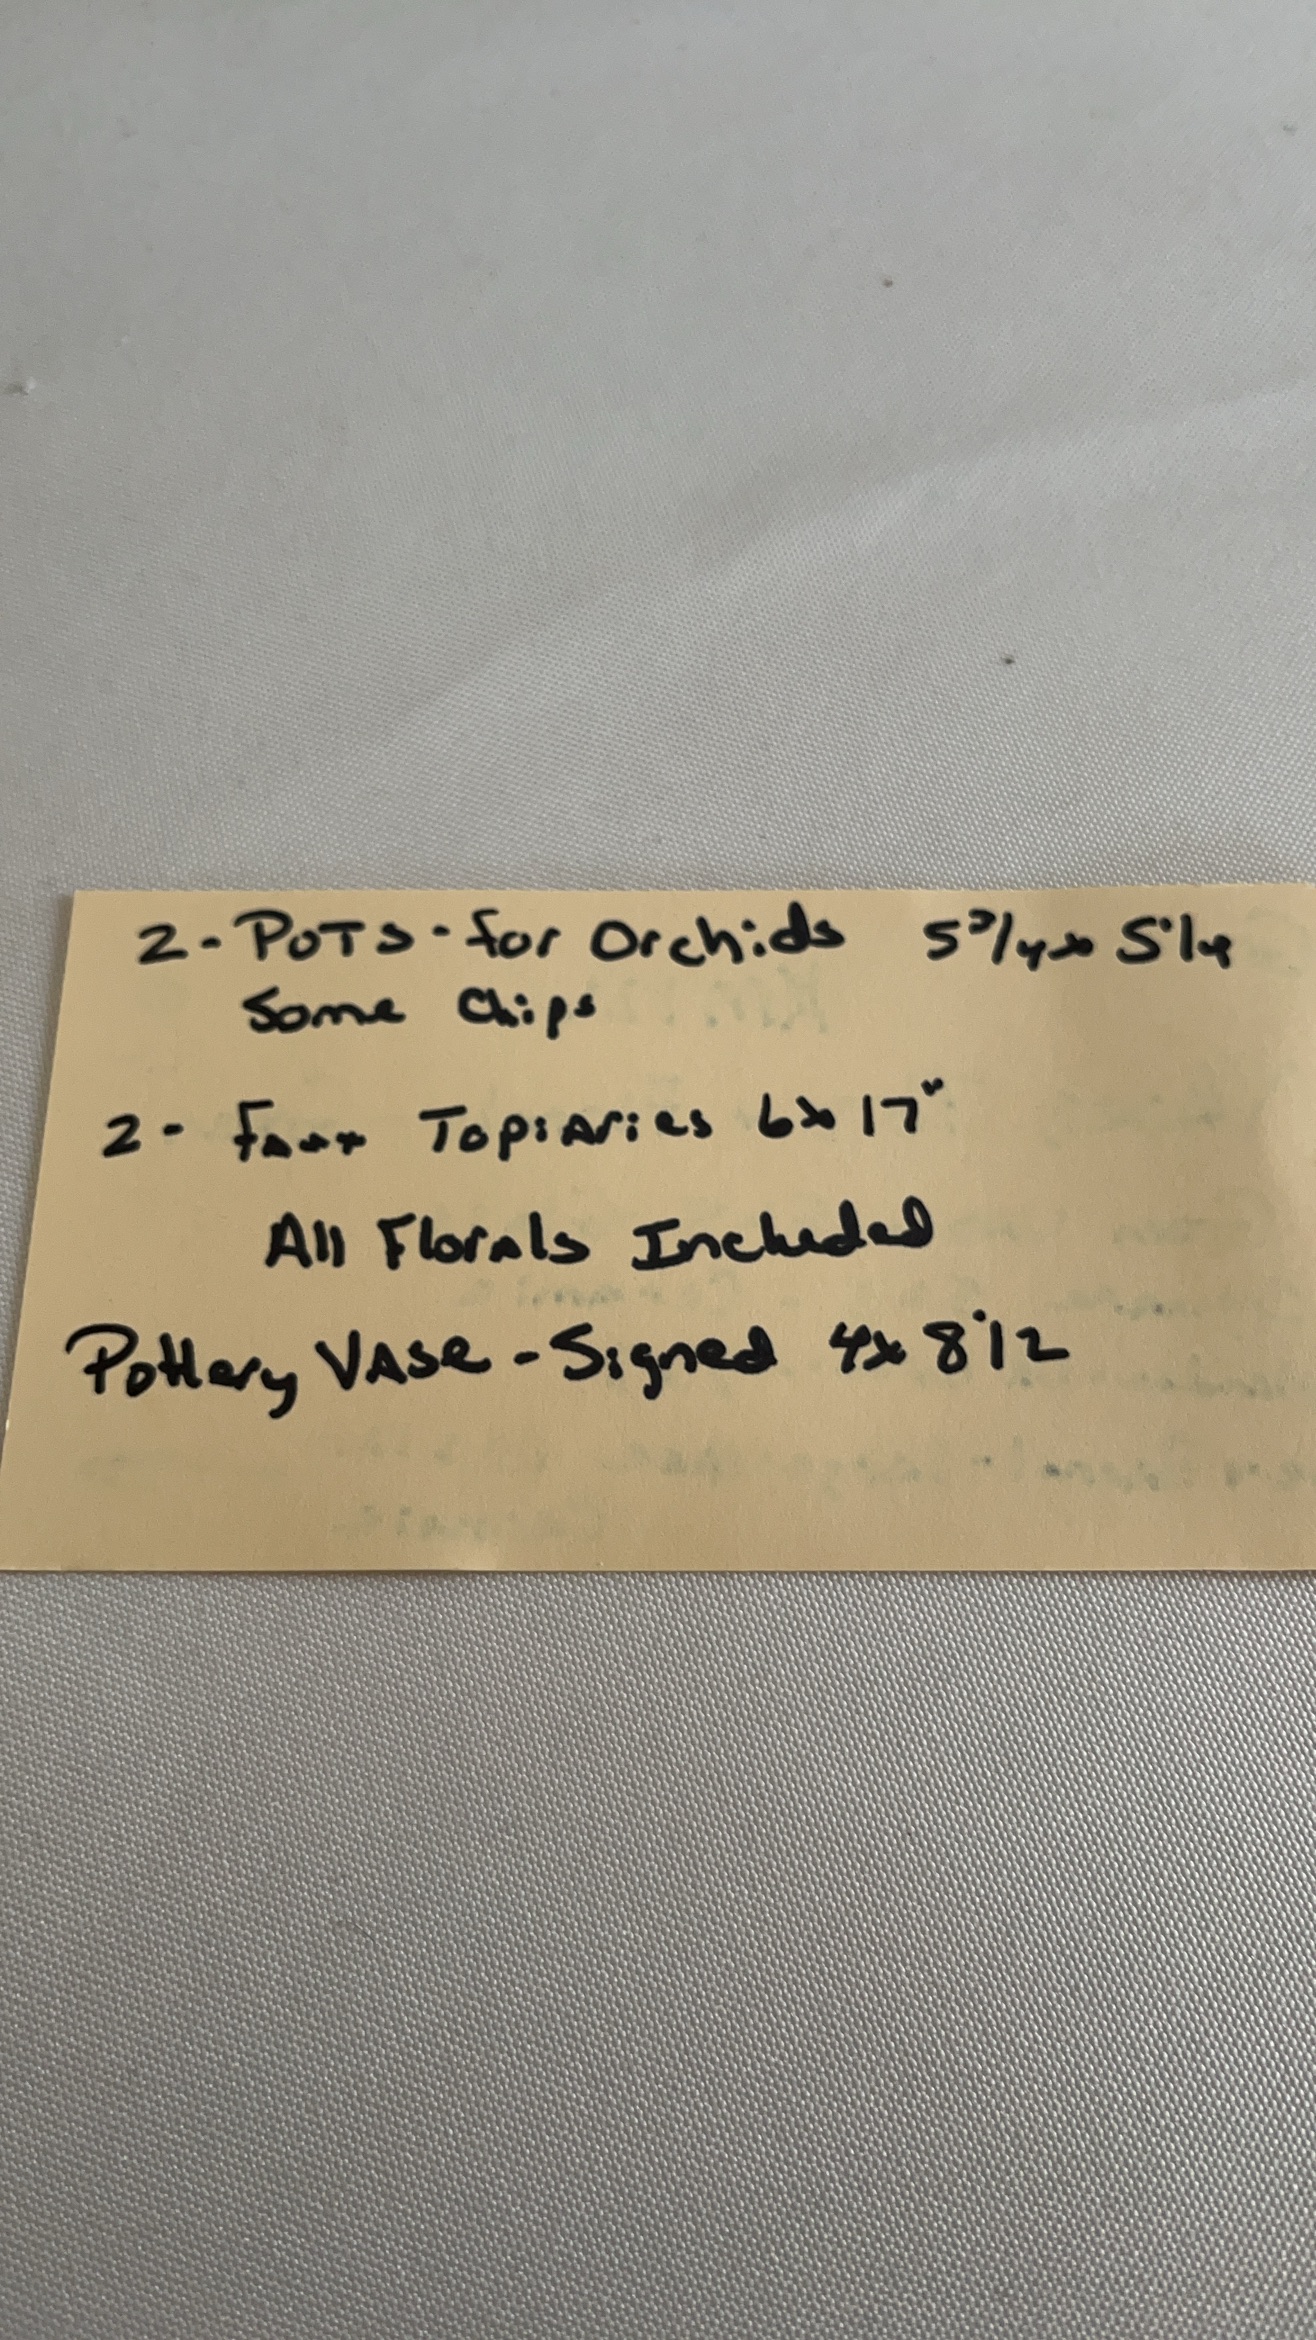 2 - POTS - for Orchids 5 3/4 x 5 1/4
Some Chips
2 - Faux Topiaries 6x17"
All Florals Included
Pottery VAse - Signed 4x 8 1/2